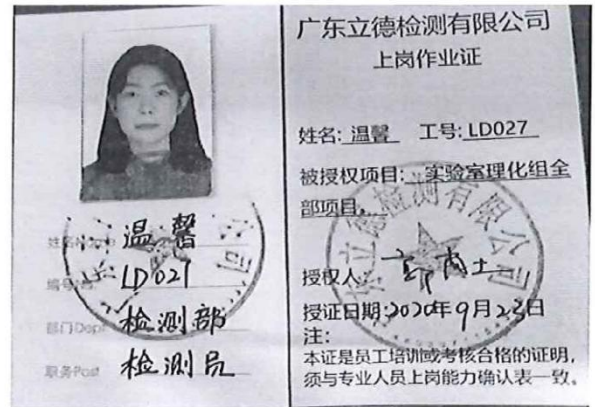 姓名Name 温馨
编号No. LD027
部门Dept 检测部
职务Post 检测员
广东立德检测有限公司
上岗作业证
姓名: 温馨 工号: LD027
被授权项目: 实验室理化组全
部项目。
授权人:
授证日期: 2020年9月23日
注:
本证是员工培训或考核合格的证明,
须与专业人员上岗能力确认表一致。